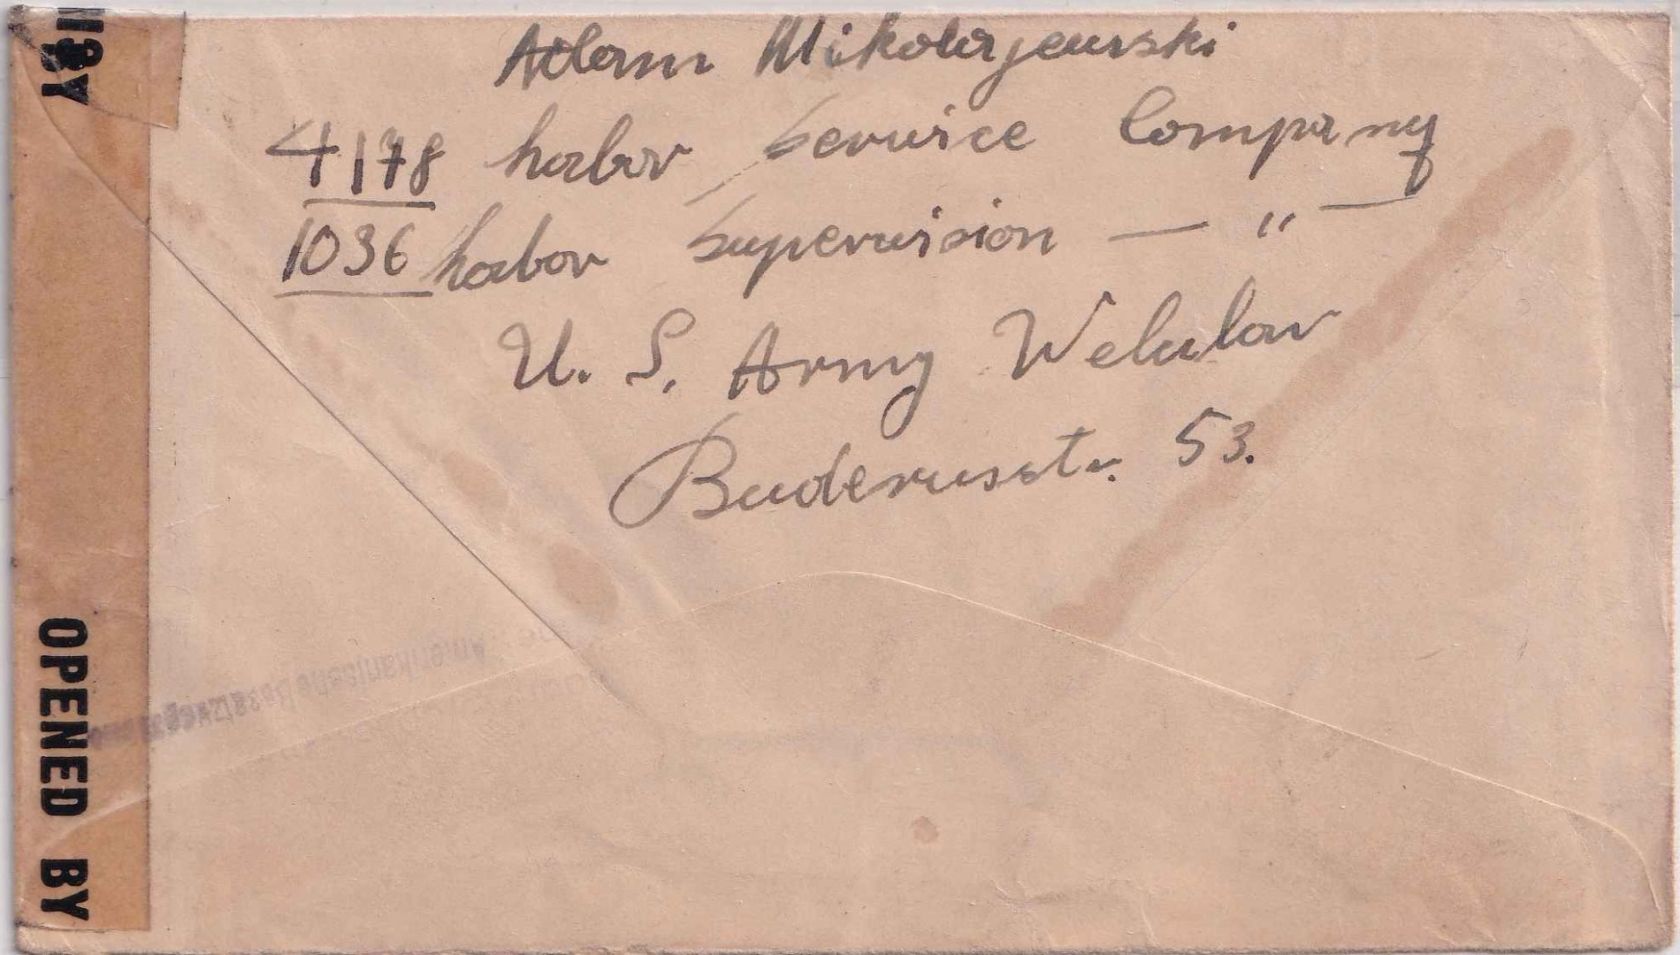 Adam Mikolajewski
4178 Labor Service Company
1036 Labor Supervision — " —
U. S. Army Wetzlar
Buderusstr. 53.
OPENED BY
BY
Amerikanische